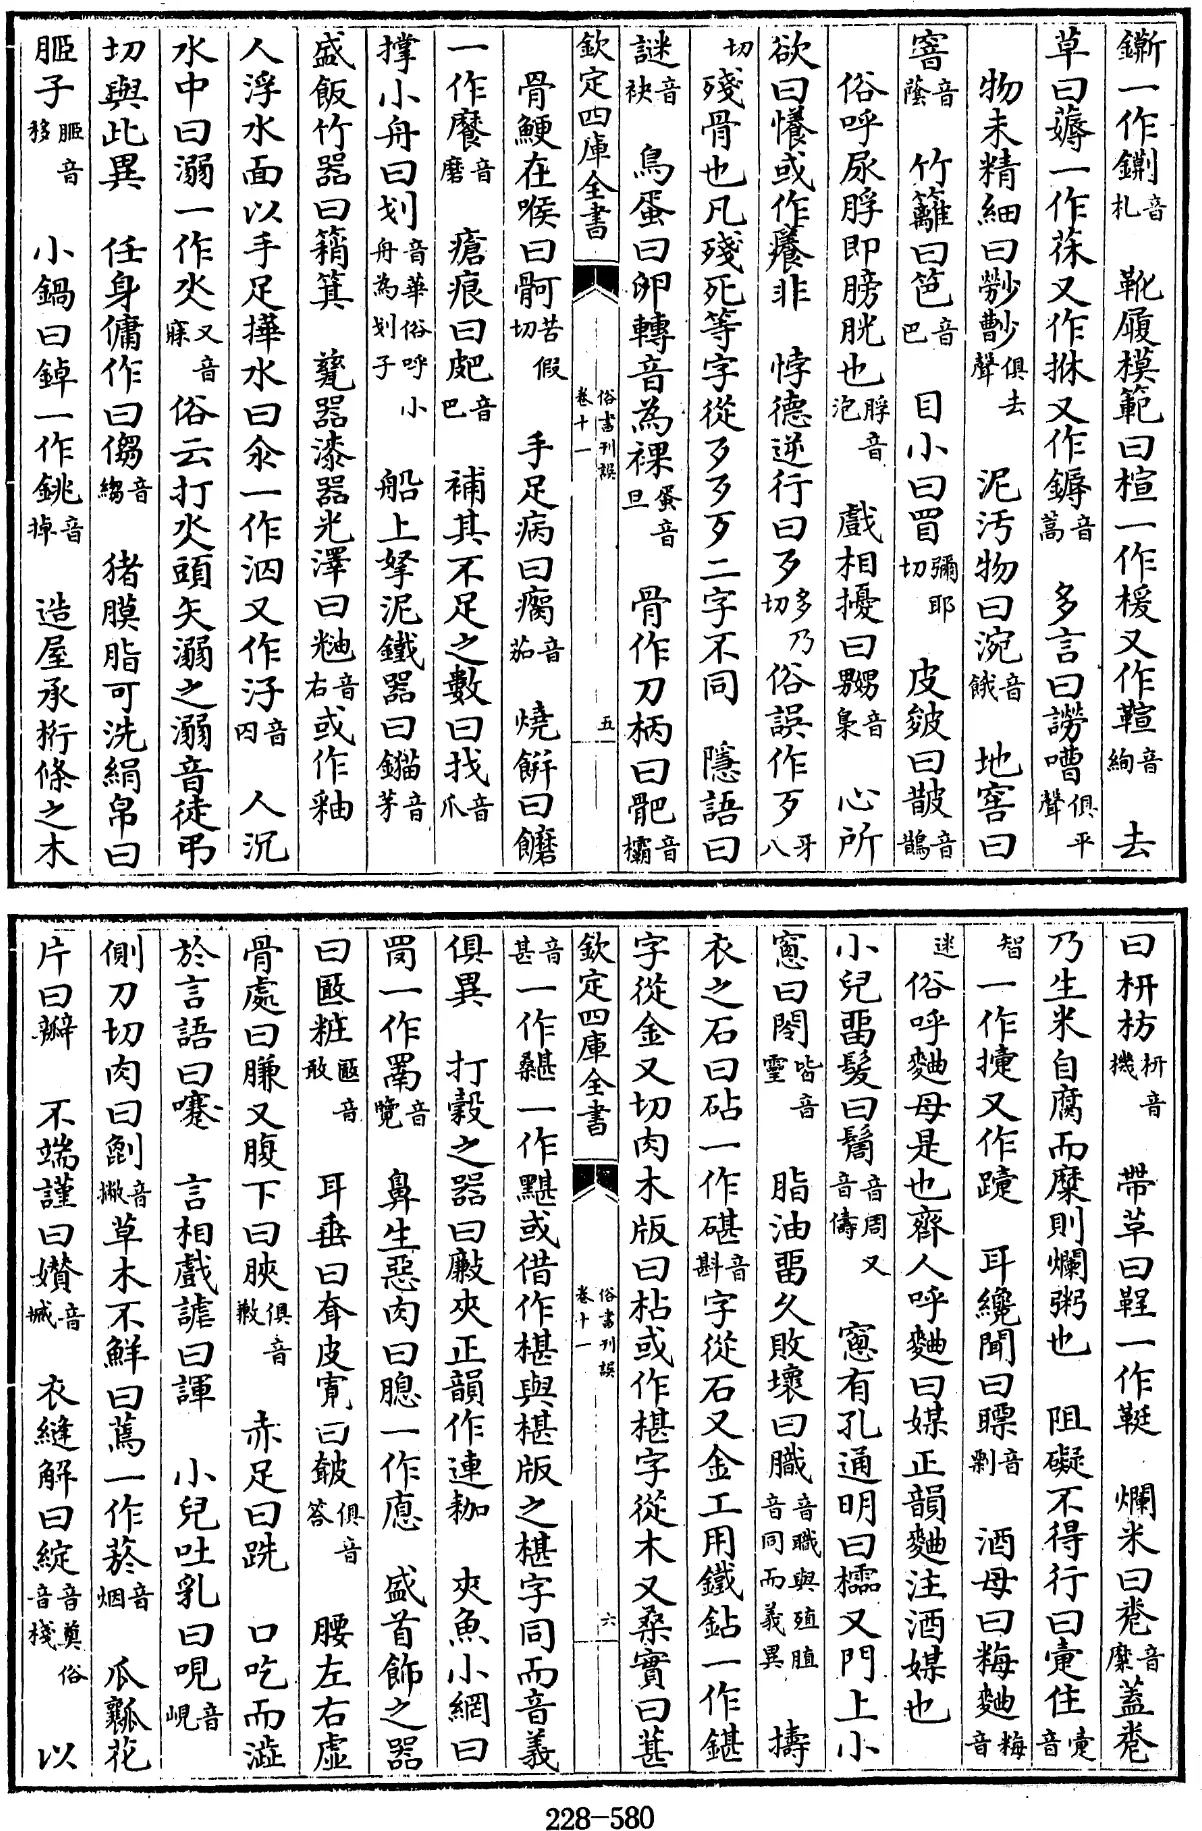 鐁一作鐁音札　靴履模範曰楦一作楥又作鞾音絢　去
草曰薅一作茠又作㧁又作鎒音蒿　多言曰謗嘈俱平聲
物未精細曰䒏䒃俱去聲　泥汚物曰涴音餓　地窖曰
窨音蔭　竹籬曰笆音巴　目小曰䀛彌耶切　皮皴曰皵音鵲
俗呼尿脬即膀胱也脬音泡　戲相擾曰嬲音裊　心所
欲曰懩或作癢非　悖德逆行曰歹多乃切俗誤作歹牙八
切殘骨也凡殘死等字從歹歹歹二字不同　隱語曰
謎音袂　鳥蛋曰卵轉音為裸蛋音旦　骨作刀柄曰𦙀音欛
欽定四庫全書　俗書刊誤卷十一　五
骨鯁在喉曰骭苦假切　手足病曰瘸音茄　燒餅曰䭆
一作䭆音磨　瘡痕曰𤿎音巴　補其不足之數曰找音爪
撑小舟曰划音華俗呼小舟為划子　船上拏泥鐵器曰錨音茅
盛飯竹器曰筲箕　甆器漆器光澤曰䊉音右或作釉
人浮水面以手足摙水曰氽一作泅又作汓音囚　人沉
水中曰溺一作氼又音寐俗云打氼頭矢溺之溺音徒弔
切與此異　任身傭作曰㑳音縐　猪膜脂可洗絹帛曰
脏子脏音移　小鍋曰銱一作銚音掉　造屋承桁條之木
曰枅枋枅音機　帶草曰鞓一作鞓　爛米曰粥音糜蓋粥
乃生米自腐而糜則爛粥也　阻礙不得行曰疐住疐音
智一作㨖又作躓　耳纔聞曰瞟音剽　酒母曰䊈麯䊈音
迷俗呼麯母是也齊人呼麯曰媒正韻麯注酒媒也
小兒畱髮曰鬌音周又音儔　窻有孔通明曰欞又門上小
窻曰閝皆音靈　脂油畱久敗壞曰膱音職與殖脜音同而義異　擣
衣之石曰砧一作碪音斟字從石又金工用鐵鉆一作鍖
字從金又切肉木版曰枮或作椹字從木又桑實曰葚
欽定四庫全書　俗書刊誤卷十一　六
音甚一作䕘一作黮或借作椹與椹版之椹字同而音義
俱異　打穀之器曰敺夾正韻作連耞　夾魚小網曰
罱一作䍐音覽　鼻生惡肉曰䏙一作瘜　盛首飾之器
曰匲粧匲音敢　耳垂曰耷皮寛曰皶俱音答　腰左右虛
骨處曰膁又腹下曰𦜕俱音歉　赤足曰跣　口吃而澁
於言語曰謇　言相戲謔曰諢　小兒吐乳曰哯音峴
側刀切肉曰劀音撇草木不鮮曰蔫一作菸音烟　瓜瓤花
片曰瓣　不端謹曰㜺音㨔　衣縫解曰綻音奠俗音棧　以
228-580